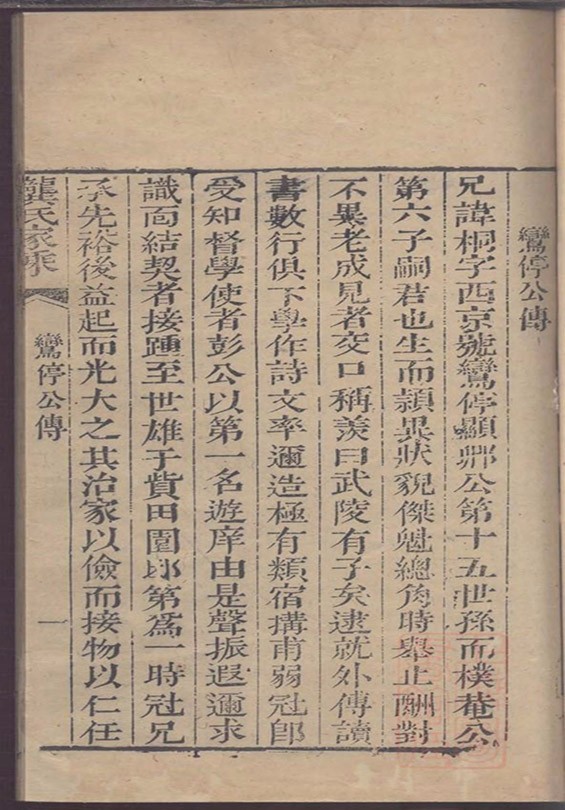 鸞停公傳
兄諱桐字西京號鸞停顯卿公第十五世孫而樸菴公
第六子嗣君也生而頴異狀貌傑魁總角時舉止酬對
不異老成見者交口稱羨曰武陵有子矣逮就外傅讀
書數行俱下學作詩文率邇造極有類宿搆甫弱冠郎
受知督學使者彭公以第一名遊庠由是聲振遐邇求
識面結契者接踵至世雄于貲田園邸第為一時冠兄
承先裕後益起而光大之其治家以儉而接物以仁任
龔氏家乘
鸞停公傳
一